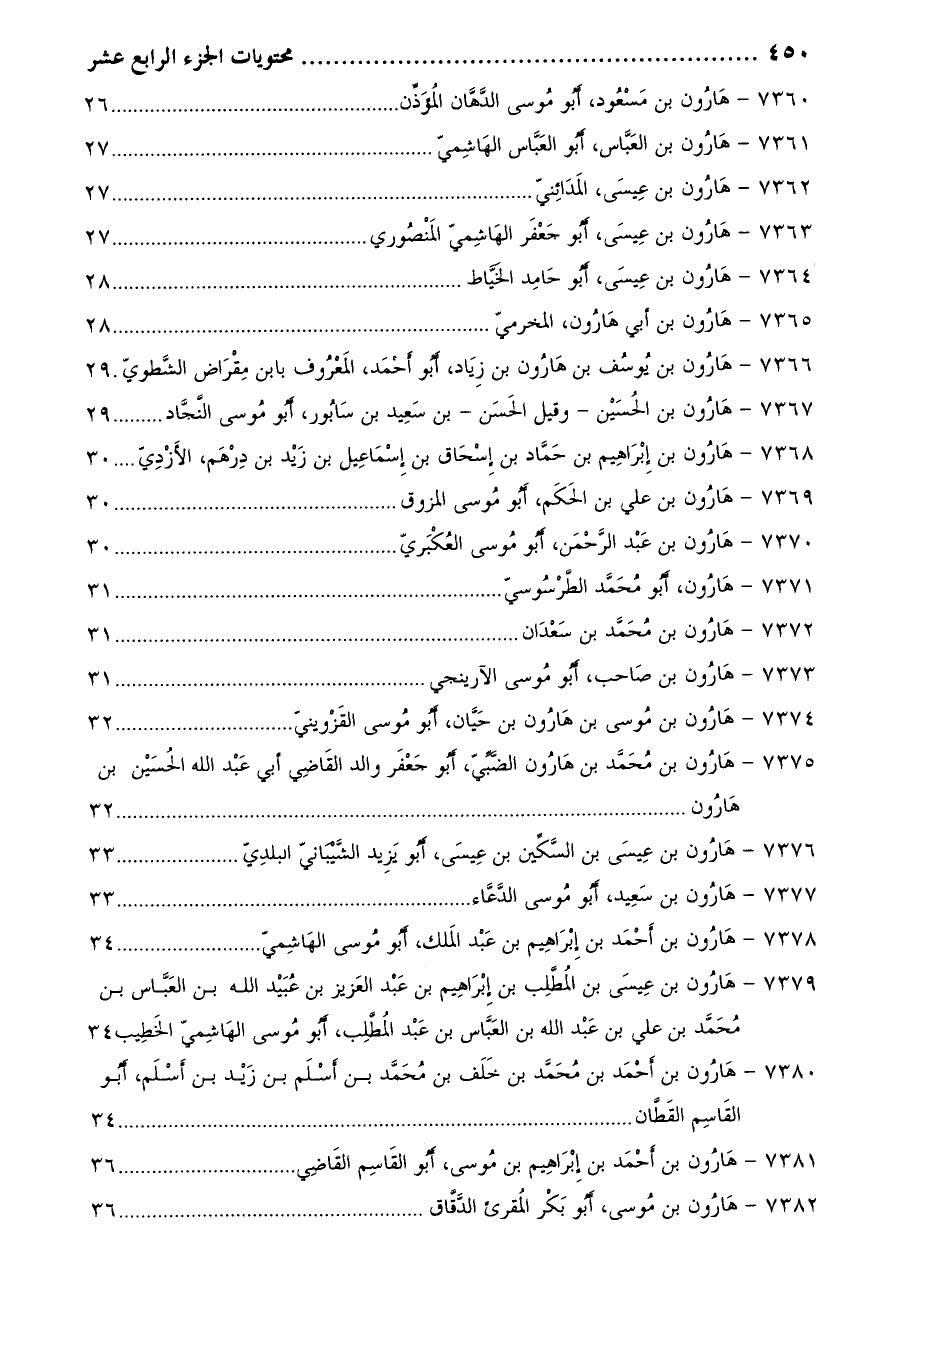 ٤٥٠ ........ محتويات الجزء الرابع عشر
٧٣٦٠ - هَارُون بن مَسْعُود، أَبُو مُوسى الدَّهَّان المُؤَذِّن ........ ٢٦
٧٣٦١ - هَارُون بن العَبَّاس، أَبُو العَبَّاس الهَاشِميّ ........ ٢٧
٧٣٦٢ - هَارُون بن عِيسَى، المَدَائِنيّ ........ ٢٧
٧٣٦٣ - هَارُون بن عِيسَى، أَبُو جَعْفَر الهَاشِميّ المَنْصُوري ........ ٢٧
٧٣٦٤ - هَارُون بن عِيسَى، أَبُو حَامِد الخَيَّاط ........ ٢٨
٧٣٦٥ - هَارُون بن أَبي هَارُون، المخرميّ ........ ٢٨
٧٣٦٦ - هَارُون بن يُوسُف بن هَارُون بن زِيَاد، أَبُو أَحْمَد، المَعْرُوف بابن مِقْرَاض الشَّطويّ . ٢٩
٧٣٦٧ - هَارُون بن الحُسَيْن - وقيل الحَسَن - بن سَعِيد بن سَابُور، أَبُو مُوسى النَّجَّاد ........ ٢٩
٧٣٦٨ - هَارُون بن إِبْرَاهِيم بن حَمَّاد بن إِسْحَاق بن إِسْمَاعِيل بن زَيْد بن دِرْهَم، الأَزْدِيّ .... ٣٠
٧٣٦٩ - هَارُون بن علي بن الحَكَم، أَبُو مُوسى المزوق ........ ٣٠
٧٣٧٠ - هَارُون بن عَبْد الرَّحْمَن، أَبُو مُوسى العُكْبَريّ ........ ٣٠
٧٣٧١ - هَارُون، أَبُو مُحَمَّد الطَّرْسُوسيّ ........ ٣١
٧٣٧٢ - هَارُون بن مُحَمَّد بن سَعْدَان ........ ٣١
٧٣٧٣ - هَارُون بن صَاحب، أَبُو مُوسى الآرينجي ........ ٣١
٧٣٧٤ - هَارُون بن مُوسى بن هَارُون بن حَيَّان، أَبُو مُوسى القَزْوِينيّ ........ ٣٢
٧٣٧٥ - هَارُون بن مُحَمَّد بن هَارُون الضَّبِّيّ، أَبُو جَعْفَر والد القَاضِي أبي عَبْد الله الحُسَيْن بن
هَارُون ........ ٣٢
٧٣٧٦ - هَارُون بن عِيسَى بن السَّكِّين بن عِيسَى، أَبُو يَزِيد الشَّيْبَانيّ البلديّ ........ ٣٣
٧٣٧٧ - هَارُون بن سَعِيد، أَبُو مُوسى الدَّعَّاء ........ ٣٣
٧٣٧٨ - هَارُون بن أَحْمَد بن إِبْرَاهِيم بن عَبْد المَلك، أَبُو مُوسى الهَاشِميّ ........ ٣٤
٧٣٧٩ - هَارُون بن عِيسَى بن المُطَّلِب بن إِبْرَاهِيم بن عَبْد العَزِيز بن عُبَيْد الله بن العَبَّاس بن
مُحَمَّد بن علي بن عَبْد الله بن العَبَّاس بن عَبْد المُطَّلِب، أَبُو مُوسى الهَاشِميّ الخَطِيب ٣٤
٧٣٨٠ - هَارُون بن أَحْمَد بن مُحَمَّد بن خَلَف بن مُحَمَّد بن أَسْلَم بن زَيْد بن أَسْلَم، أَبُو
القَاسِم القَطَّان ........ ٣٤
٧٣٨١ - هَارُون بن أَحْمَد بن إِبْرَاهِيم بن مُوسى، أَبُو القَاسِم القَاضِي ........ ٣٦
٧٣٨٢ - هَارُون بن مُوسى، أَبُو بَكْر المُقرئ الدَّقَّاق ........ ٣٦